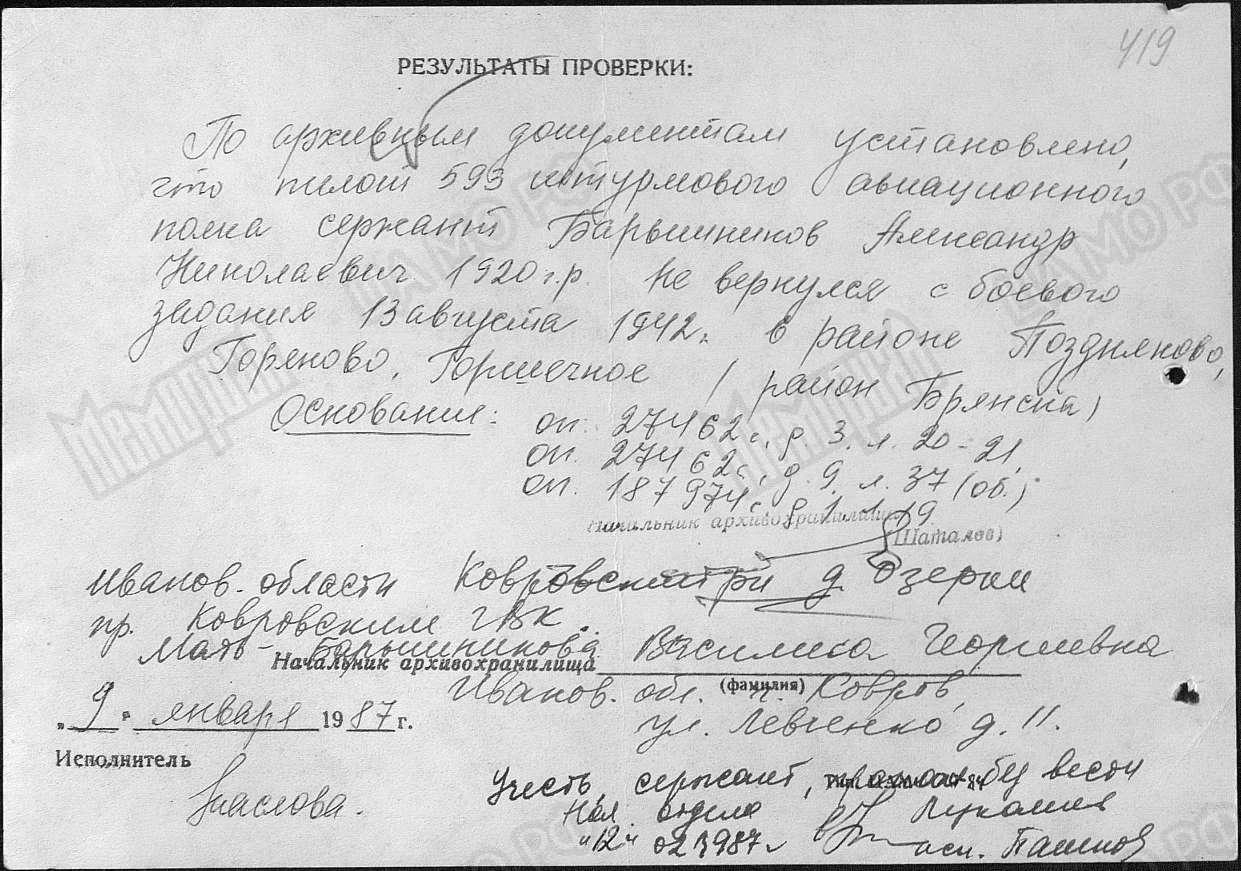 419
РЕЗУЛЬТАТЫ ПРОВЕРКИ:
По архивным документам установлено,
что пилот 593 штурмового авиационного
полка сержант Барышников Александр
Николаевич 1920 г.р. не вернулся с боевого
задания 13 августа 1942 г. в районе Поздняково,
Горяново, Горшечное / район Брянска)
Основание: оп. 27462с, д. 3. л. 20-21,
оп. 27462с, д. 9. л. 37 (об.)
оп. 187974с, д. 1 л. 19
Начальник архивохранилища
(Шаталов)
Иванов. области Ковровский д. Озерки
пр. Ковровским ГВК.
Мать - Барышникова Василиса Георгиевна
Начальник архивохранилища
(фамилия)
Иванов. обл. г. Ковров,
ул. Левченко, д. 11.
„9" января 1987 г.
Исполнитель
Маслова.
Учесть, сержант, пропал без вести
Нач. отдела Лукашев
"12" 02 1987 г исп. Пашков
Мемориал
ЦАМО РФ